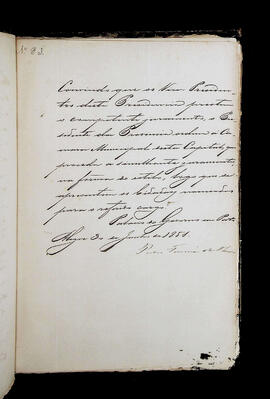 Nº 83.
Convindo que os Vice Presiden-
tes desta Provincia prestem
o competente juramento, o Pre-
sidente da Provincia ordena á Ca-
mara Municipal desta Capital, que
proceda a similhante juramento
na forma do estilo, logo que se
apresentem os Cidadãos nomeados
para o referido cargo.
Palacio do Governo em Porto
Alegre 30 de Junho de 1851.